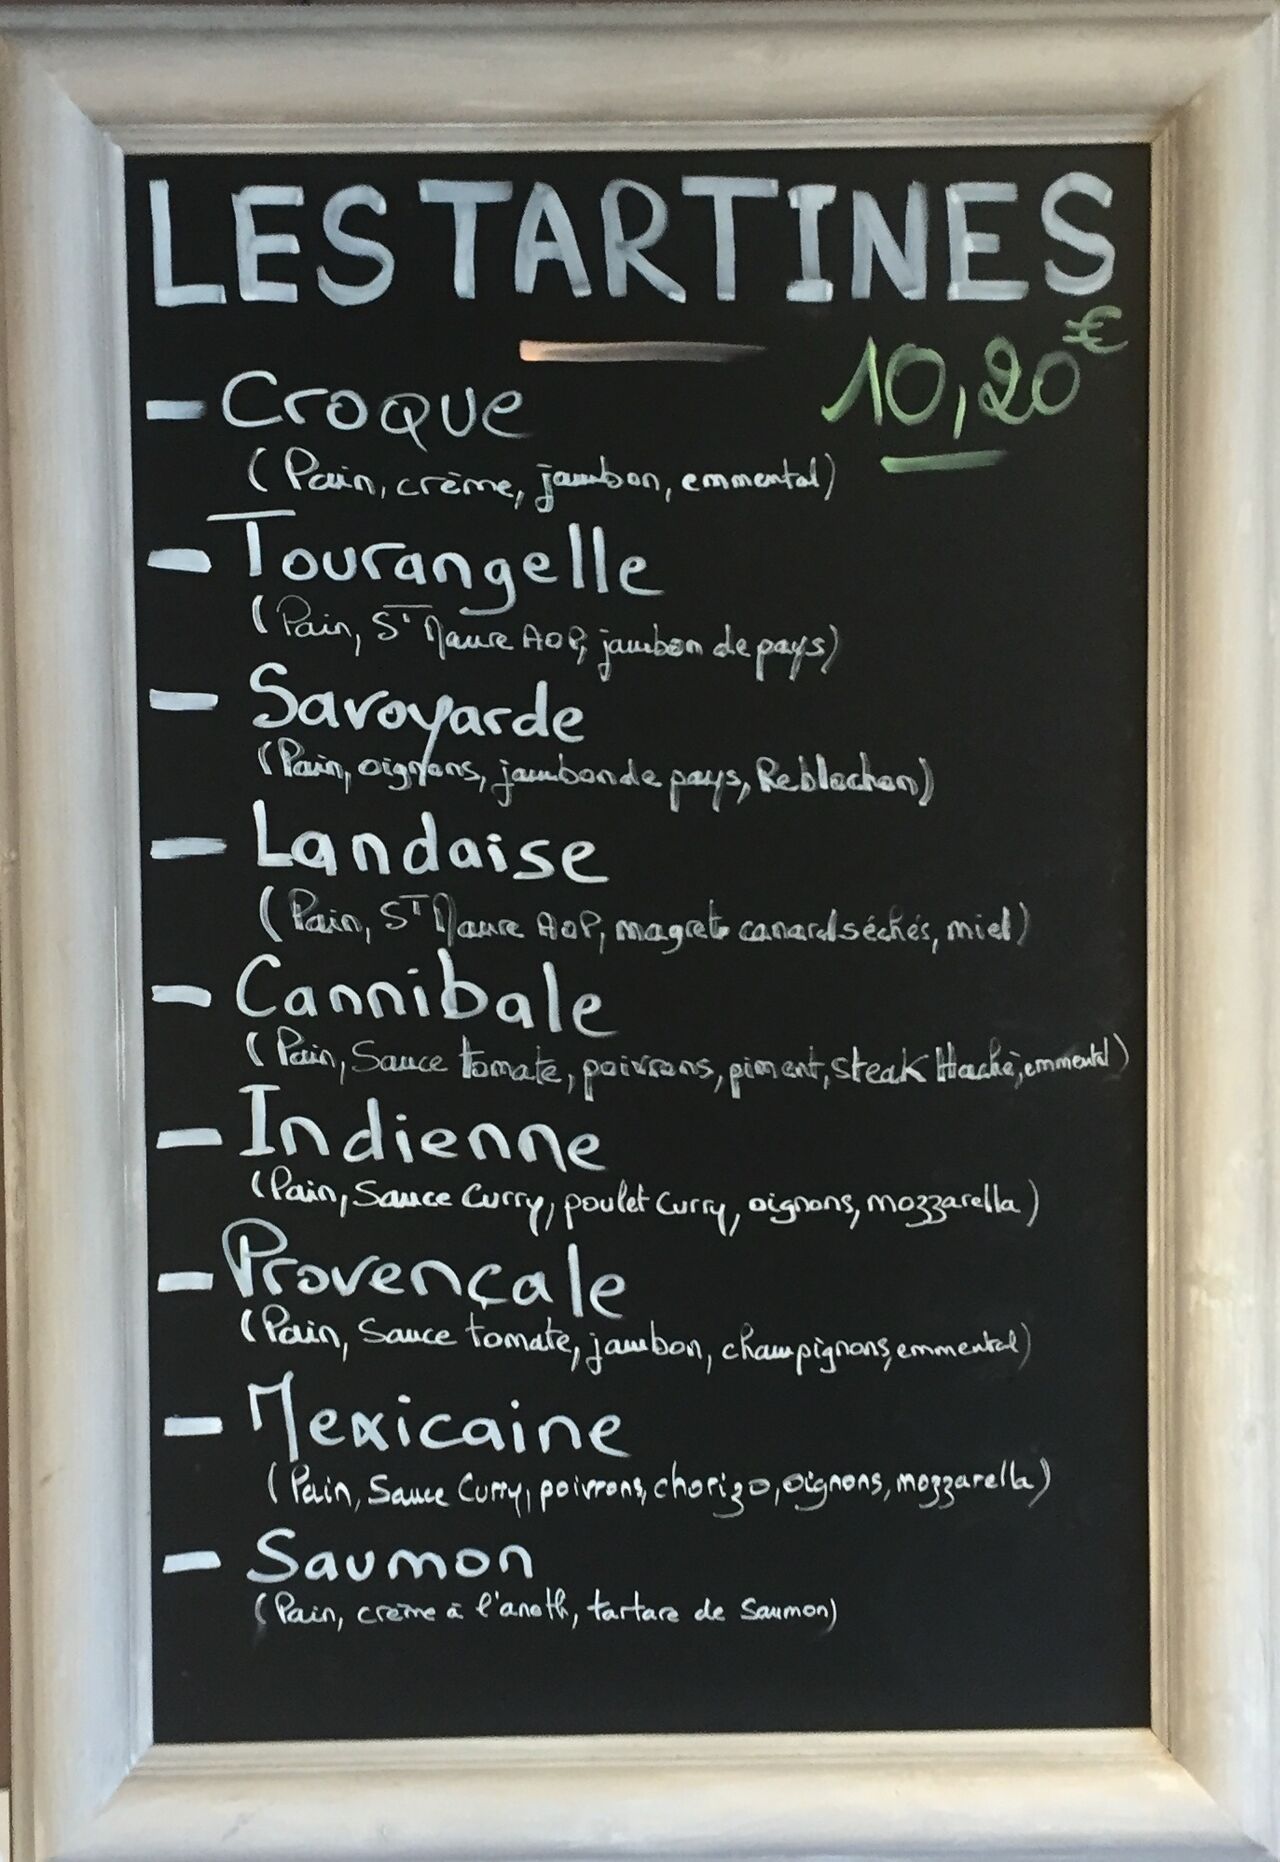 LES TARTINES
10,20€
- Croque
(Pain, crème, jambon, emmental)
- Tourangelle
(Pain, St Maure AOP, jambon de pays)
- Savoyarde
(Pain, oignons, jambon de pays, Reblochon)
- Landaise
(Pain, ST Maure AOP, magret canard séchés, miel)
- Cannibale
(Pain, Sauce tomate, poivrons, piment, steak Haché, emmental)
- Indienne
(Pain, Sauce Curry, poulet Curry, oignons, mozzarella)
- Provençale
(Pain, Sauce tomate, jambon, champignons, emmental)
- Mexicaine
(Pain, Sauce Curry, poivrons, chorizo, oignons, mozzarella)
- Saumon
(Pain, crème à l'aneth, tartare de Saumon)